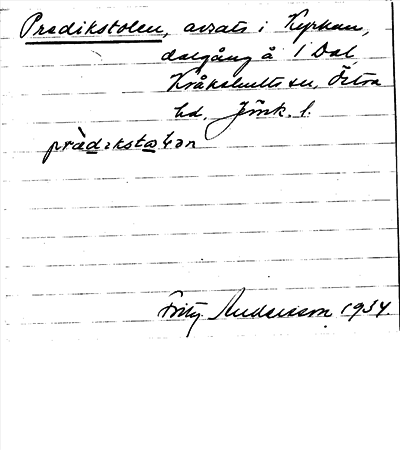 Predikstolen, avsats i Kyrkan,
dalgång å 1 Dal,
Kråkshults sn, Östra
hd, Jönk. l.
prèdikstⱥⱡən
Fritz Andersson 1934.